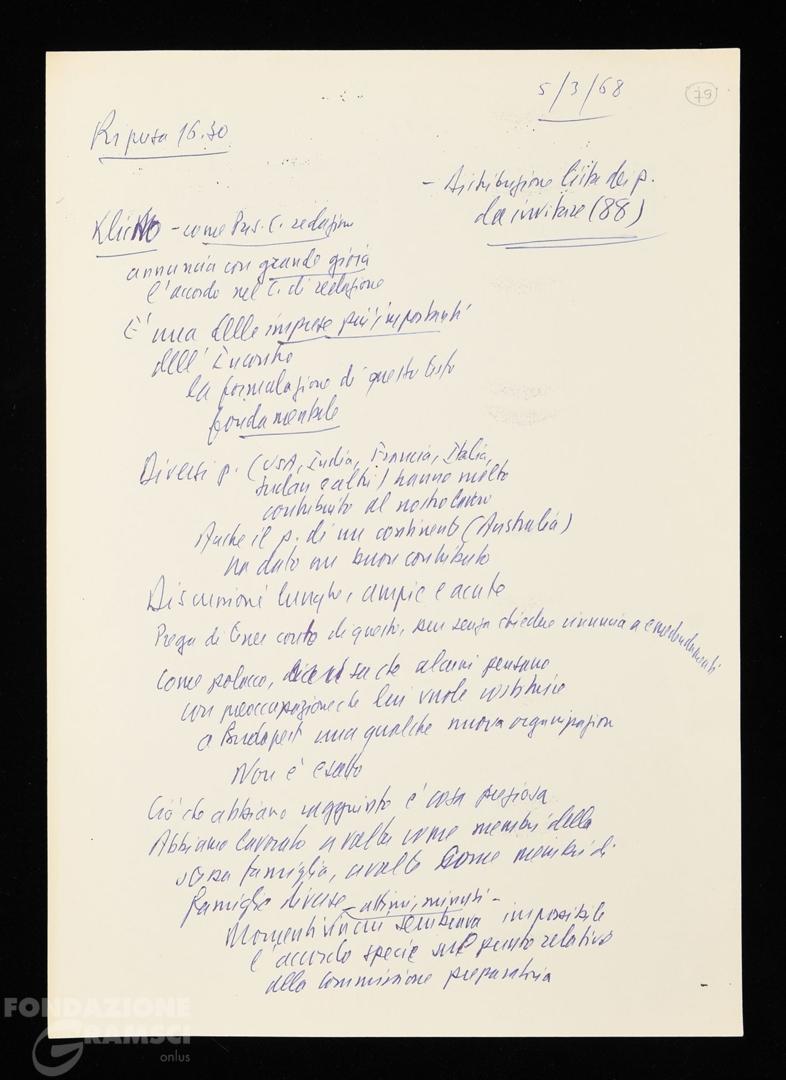 5/3/68
79
Ripresa 16.30
- distribuzione lista dei p.
da invitare (88)
Kliszko - come Pres. C. redazione
annuncia con grande gioia
l'accordo nel C. di redazione
È una delle imprese più importanti
dell'Incontro
la formulazione di questo testo
fondamentale
Diversi p. (USA, India, Francia, Italia,
Sudan e altri) hanno molto
contribuito al nostro lavoro
Anche il p. di un continente (Australia)
ha dato un buon contributo
Discussioni lunghe, ampie e acute
Prega di tener conto di questo, pur senza chiedere rinuncia a emendamenti
Come polacco, dice sa che alcuni pensano
con preoccupazione che lui vuole costituire
a Budapest una qualche nuova organizzazione
Non è esatto
Ciò che abbiamo raggiunto è cosa preziosa
Abbiamo lavorato a volte come membri della
stessa famiglia, a volte come membri di
famiglie diverse - attimi, minuti -
Momenti in cui sembrava impossibile
l'accordo specie sul punto relativo
alla commissione preparatoria
FONDAZIONE
GRAMSCI
onlus